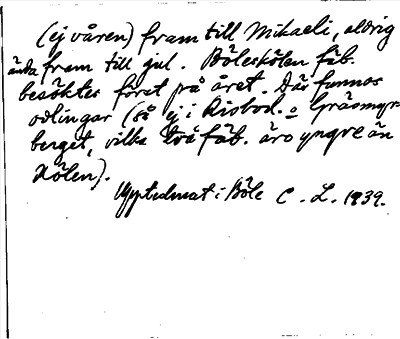 (ej våren) fram till Mikaeli, aldrig
ända fram till jul. Böleskölen fäb.
besöktes först på året. Där funnos
odlingar (så ej i Risbod. o Gräsmyr-
berget, vilka två fäb. äro yngre än
Kölen).
Upptecknat i Böle C. L. 1939.